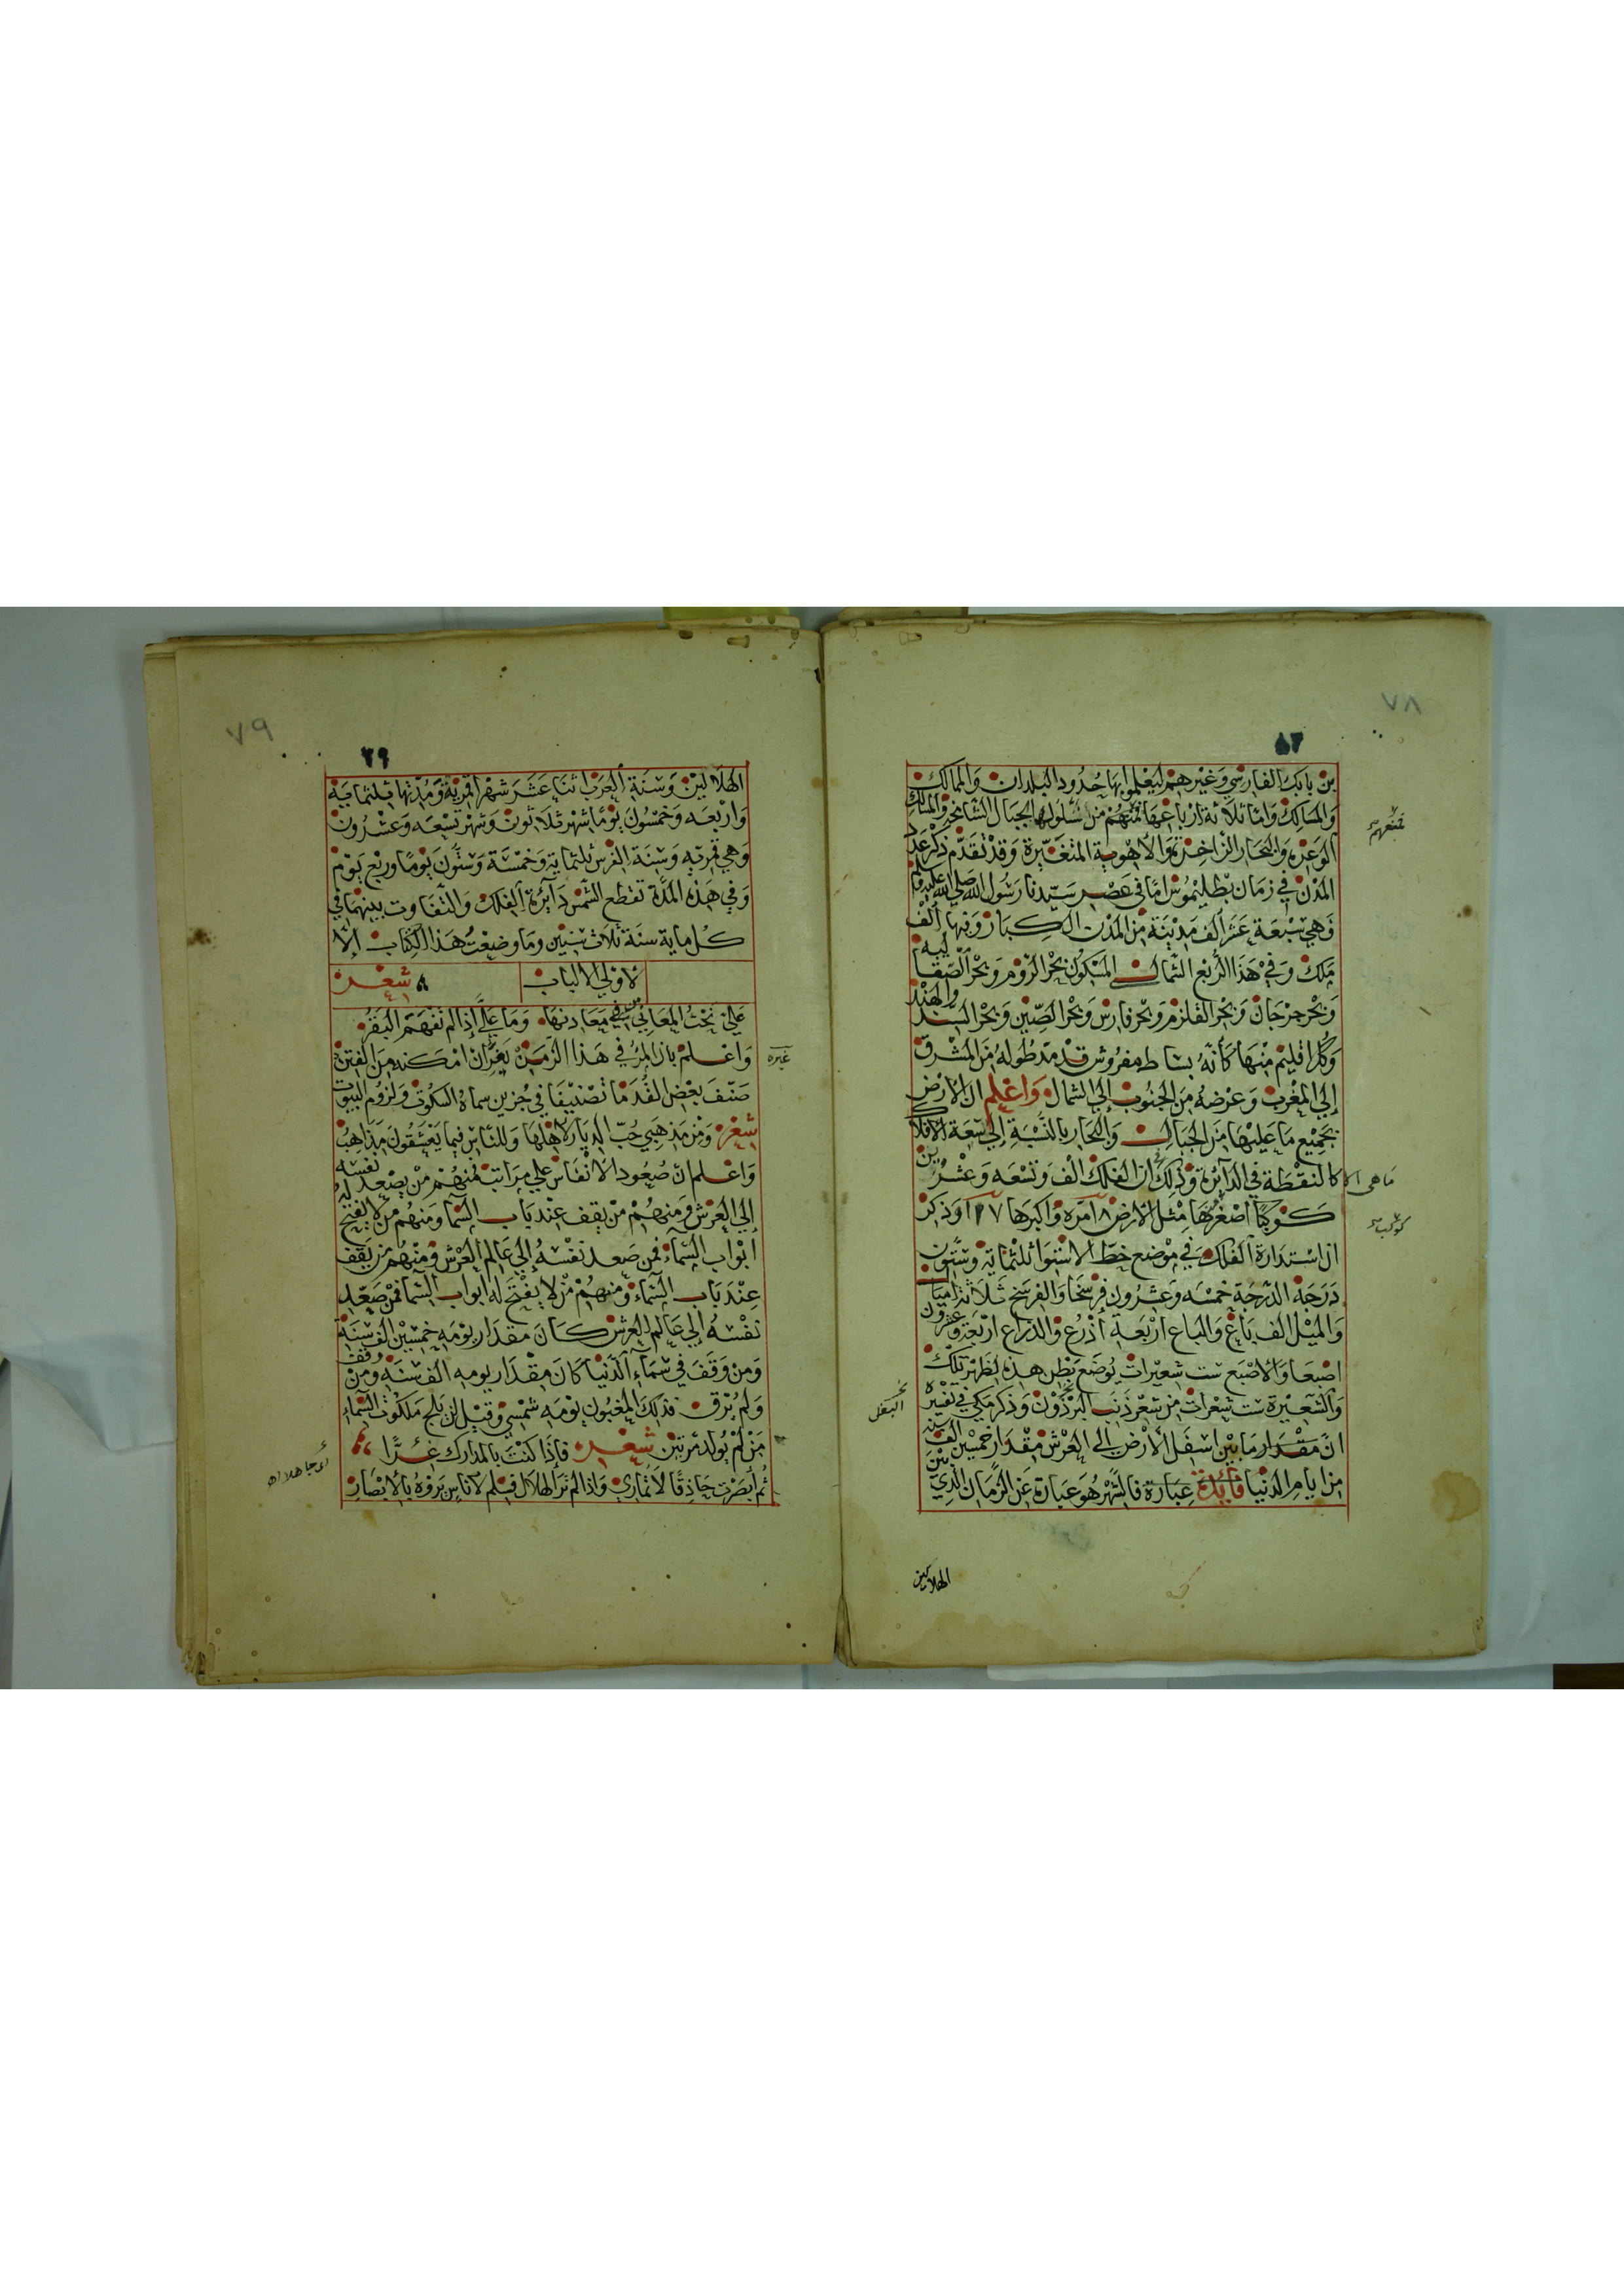 ٧٨
بن بابك الفارسي وغيرهم ليعلموا بها حدود البلدان والممالك
والمسالك واما ثلاثة ارباعها فمنعهم من سلوكها الجبال الشامخة والمسالك
الوعرة والبحار الزاخرة والاهوية المتغيرة وقد تقدم ذكر عدد
المدن في زمان بطليموس اما في عصر سيدنا رسول الله صلى الله عليه وسلم
فهي سبعة عشر ألف مدينة من المدن الكبار وفيها ألف
ملك وفي هذا الربع الشمالي المسكون بحر الروم وبحر الصقالبه
وبحر جرجان وبحر القلزم وبحر فارس وبحر الصين وبحر السند والهند
وكل اقليم منها كأنه بساط مفروش قد مد طوله من المشرق
إلي المغرب وعرضه من الجنوب إلي الشمال واعلم ان الارض
بجميع ما عليها من الجبال والبحار بالنسبة إلي سعة الافلاك
ما هي الا كالنقطة في الدائرة وذلك ان الفلك الف وتسعه وعشرين
كوكبا اصغرها مثل الارض ١٨ مره واكبرها ١٠٧ وذكر
ان استدارة الفلك في موضع خط الاستوا ثلثماية وستون
درجة الدرجة خمسه وعشرون فرسخا والفرسخ ثلاثة اميال
والميل الف باع والباع اربعة أذرع والذراع اربعة وعشرون
اصبعا والاصبع ست شعيرات يوضع بطن هذه لظهر تلك
والشعيرة ست شعرات من شعر ذنب البرذون وذكر مكي في تفسيره
ان مقدار ما بين اسفل الأرض الى العرش مقدار خمسين الف سنه
من ايام الدنيا فائدة عبارة فالشهر هو عبارة عن الزمان الذي بين
الهلالين
كوكب
البغل
٧٩
٢٩
الهلالين وسنة العرب اثنا عشر شهرا قمرية ومدتها ثلثماية
واربعه وخمسون يوما شهر ثلاثون وشهر تسعه وعشرون
وهي قمريه وسنة الفرس ثلثماية وخمسة وستون يوما وربع يوم
وفي هذه المدة تقطع الشمس دائرة الفلك والتفاوت بينهما في
كل ماية سنة ثلاث سنين وما وضعت هذا الكتاب الا
لاولي الالباب شعر
علي نحت المعاني من معادنها وما علي إذا لم تفهم البقر
واعلم بان المرء في هذا الزمن يغر ان امكنه من الفتن
غيره
صنف بعض القدما تصنيفا في جزين سماه السكوت ولزوم البيوت
شعر ومن مذهبي حب الديار لاهلها وللناس فيما يعشقون مذاهب
واعلم ان صعود الانفاس علي مراتب فمنهم من يصعد نفسه
إلي العرش ومنهم من يقف عند باب السما ومنهم من لا يفتح له
ابواب السماء فمن صعد نفسه إلي عالم العرش ومنهم من يقف
عند باب السماء ومنهم من لا يفتح له ابواب السما فمن صعد
نفسه إلي عالم العرش كان مقدار يومه خمسين الف سنة
ومن وقف في سماء الدنيا كان مقدار يومه الف سنه ومن وقف
ولم يرق فذلك المغبون يومه شمسي وقيل لن يلج ملكوت السماء
من لم يولد مرتين شعر فإذا كنت بالمدارك غرًّا
ثم أبصرت حاذقا لا تماري واذا لم تر الهلال فسلم لاناس يروه بالابصار
أي جاهلا اه